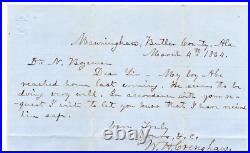 Manningham, Butler County, Ala
March 4th 1864.
Dr. N. Bozeman
Dear Sir - My boy Abe
reached home last evening. He seems to be
doing very well. In accordance with your re-
quest I write to let you know that I have receiv
him safe.
Yours Truly
W. H. Crenshaw